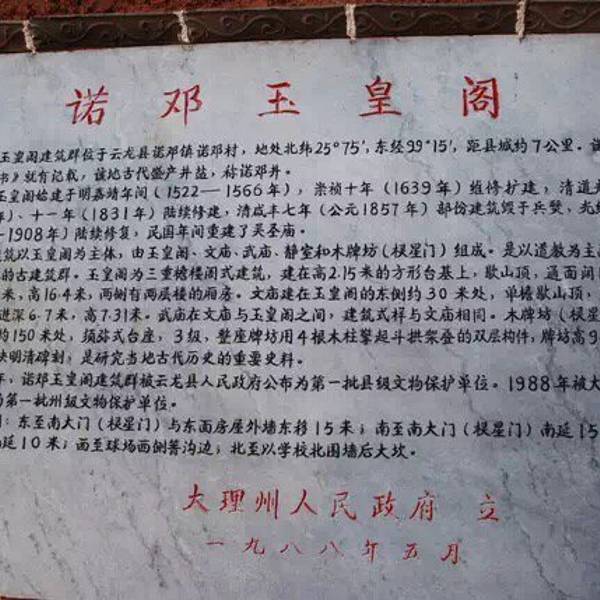 诺邓玉皇阁
玉皇阁建筑群位于云龙县诺邓镇诺邓村，地处北纬25°75′，东经99°15′，距县城约7公里。
书》就有记载，该地古代盛产井盐，称诺邓井。
玉皇阁始建于明嘉靖年间（1522—1566年），崇祯十年（1639年）维修扩建，清道光
、十一年（1831年）陆续修建，清咸丰七年（公元1857年）部份建筑毁于兵燹，光绪
-1908年）陆续修复，民国年间重建了关圣庙。
筑以玉皇阁为主体，由玉皇阁、文庙、武庙、静室和木牌坊（棂星门）组成。是以道教为主
的古建筑群。玉皇阁为三重檐楼阁式建筑，建在高2.15米的方形台基上，歇山顶，通面阔
米，高16.4米，两侧有两层楼的厢房。文庙建在玉皇阁的东侧约30米处，单檐歇山顶，
进深6.7米，高7.31米。武庙在文庙与玉皇阁之间，建筑式样与文庙相同。木牌坊（棂星
约150米处，须弥式台座，3级，整座牌坊用4根木柱擎起斗拱架叠的双层构件，牌坊高9
块明清碑刻，是研究当地古代历史的重要史料。
年，诺邓玉皇阁建筑群被云龙县人民政府公布为第一批县级文物保护单位。1988年被大
为第一批州级文物保护单位。
：东至南大门（棂星门）与东面房屋外墙东移15米；南至南大门（棂星门）南延15
延10米；西至球场西侧箐沟边；北至以学校北围墙后大坎。
大理州人民政府 立
一九八八年五月